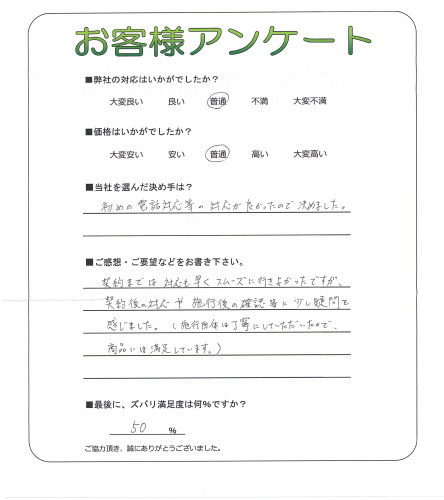 お客様アンケート
■弊社の対応はいかがでしたか?
大変良い 良い 普通 不満 大変不満
■価格はいかがでしたか?
大変安い 安い 普通 高い 大変高い
■当社を選んだ決め手は?
初めの電話対応等の対応が良かったので決めました。
■ご感想・ご要望などをお書き下さい。
契約までは対応も早くスムーズに行きよかったですが、
契約後の対応や施行後の確認等に少し疑問を
感じました。(施行自体は丁寧にしていただいたので、
商品には満足しています。)
■最後に、ズバリ満足度は何%ですか?
50 %
ご協力頂き、誠にありがとうございました。